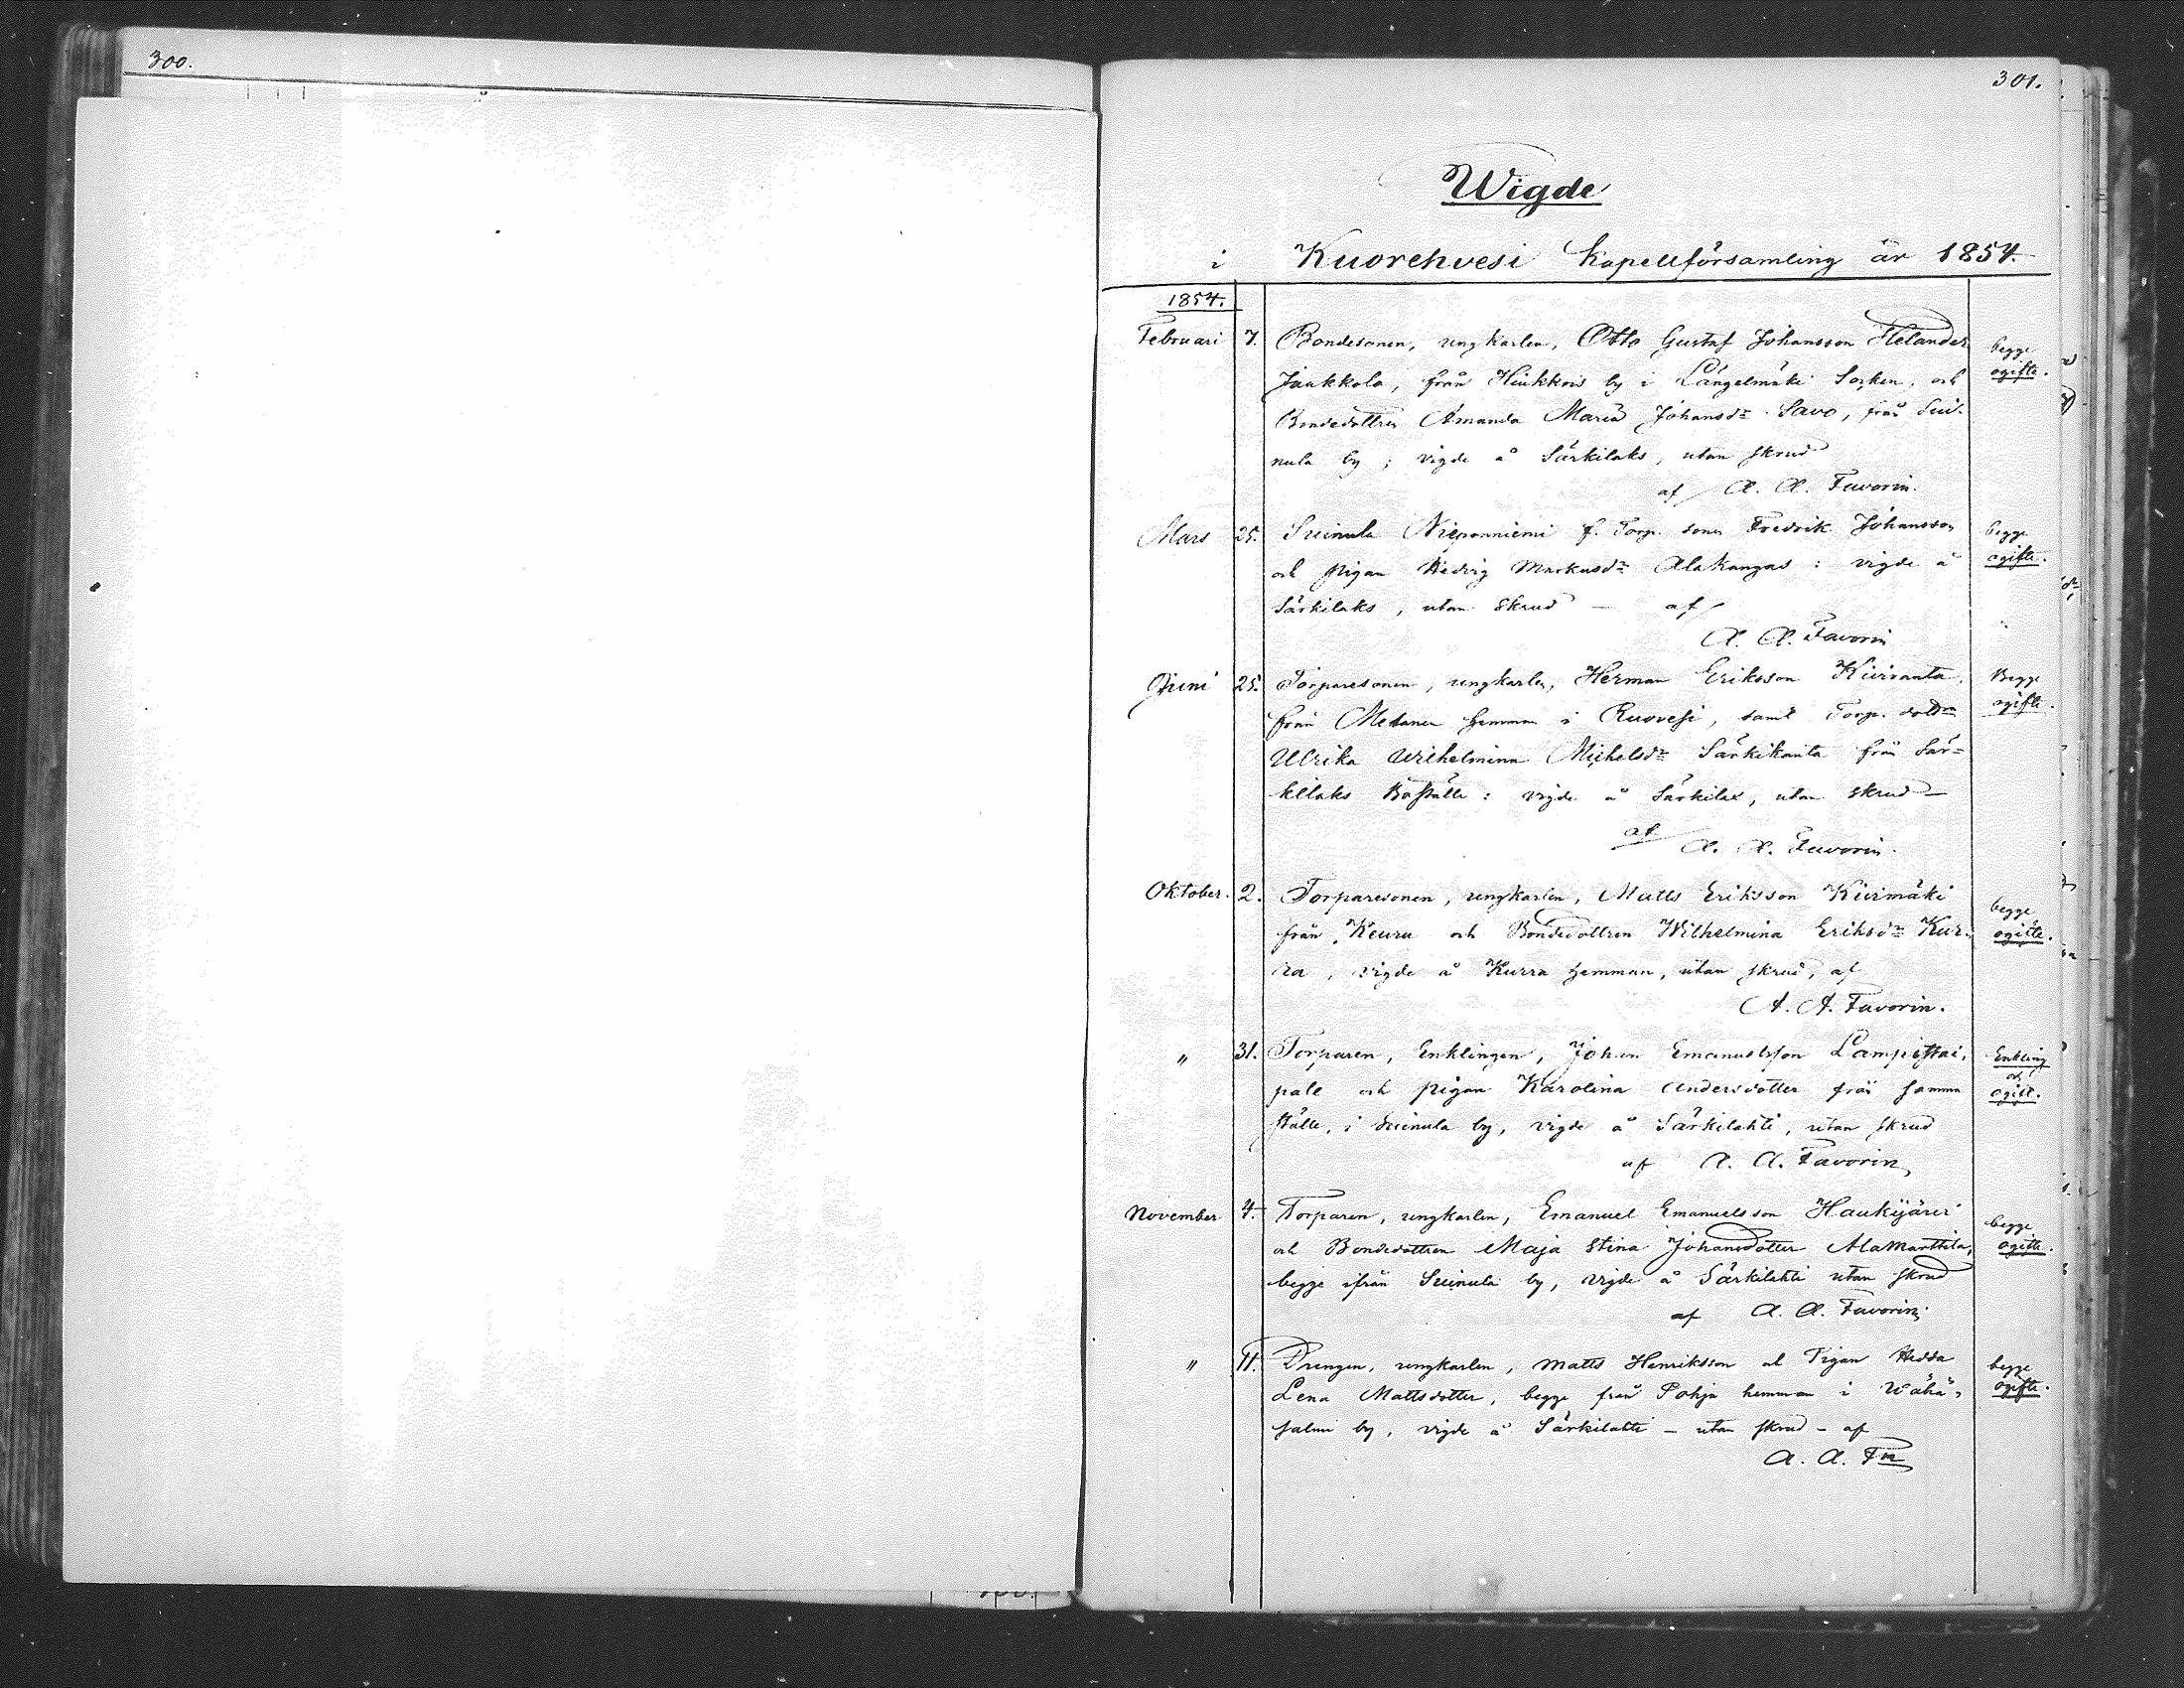 300.
301.
Wigde
i Kuorehvesi Kapellförsamling år 1854.
1854.
Februari 7. Bondesonen, ungkarlen, Otto Gustaf Johansson Helander begge
Jaakkola, från Hiukkois by i Längelmäki Socken, och ogifte.
Bondedottren Amanda Maria Johansdr Savo, från Sui-
nula by; vigde å Särkilaks, utan skrud
af A. A. Favorin.
Mars 25. Suinula Nieponniemi f. Torp. sonen Fredrik Johansson begge
och pigan Hedvig Markusdr Alakangas: vigde å ogifte.
Särkilaks, utan skrud — af
A. A. Favorin
Juni 25. Torparesonen, ungkarlen, Herman Eriksson Kiviranta, Begge
från hemman i Ruovesi, samt Torp. dottr ogifte.
Ulrika Wilhelmina Michelsdr Särkikanta från Sär-
kilaks Boställe: vigde å Särkilax, utan skrud —
af A. A. Favorin.
Oktober. 2. Torparesonen, ungkarlen, Matts Eriksson Kivimäki begge
från Keuru och Bondedottren Wilhelmina Eriksdr Kur- ogifte.
ra, vigde å Kurra hemman, utan skrud, af
A. A. Favorin.
" 31. Torparen, Enklingen, Johan Emanuelsson Lampistai- Enkling
pale och pigan Karolina Andersdotter från samma och ogift.
ställe, i Suinula by, vigde å Särkilahti, utan skrud
af A. A. Favorin
November 4. Torparen, ungkarlen, Emanuel Emanuelsson Haukijärvi begge
och Bondedottren Maja Stina Johansdotter AlaMarttila, ogifte.
begge ifrån Suinula by, vigde å Särkilahti utan skrud
af A. A. Favorin
" 11. Drengen, ungkarlen, Matts Henriksson och Pigan Hedda begge
Lena Mattsdotter, begge från Pohja hemman i Wähä- ogifte.
salmi by, vigde å Särkilahti – utan skrud – af
A. A. Fn